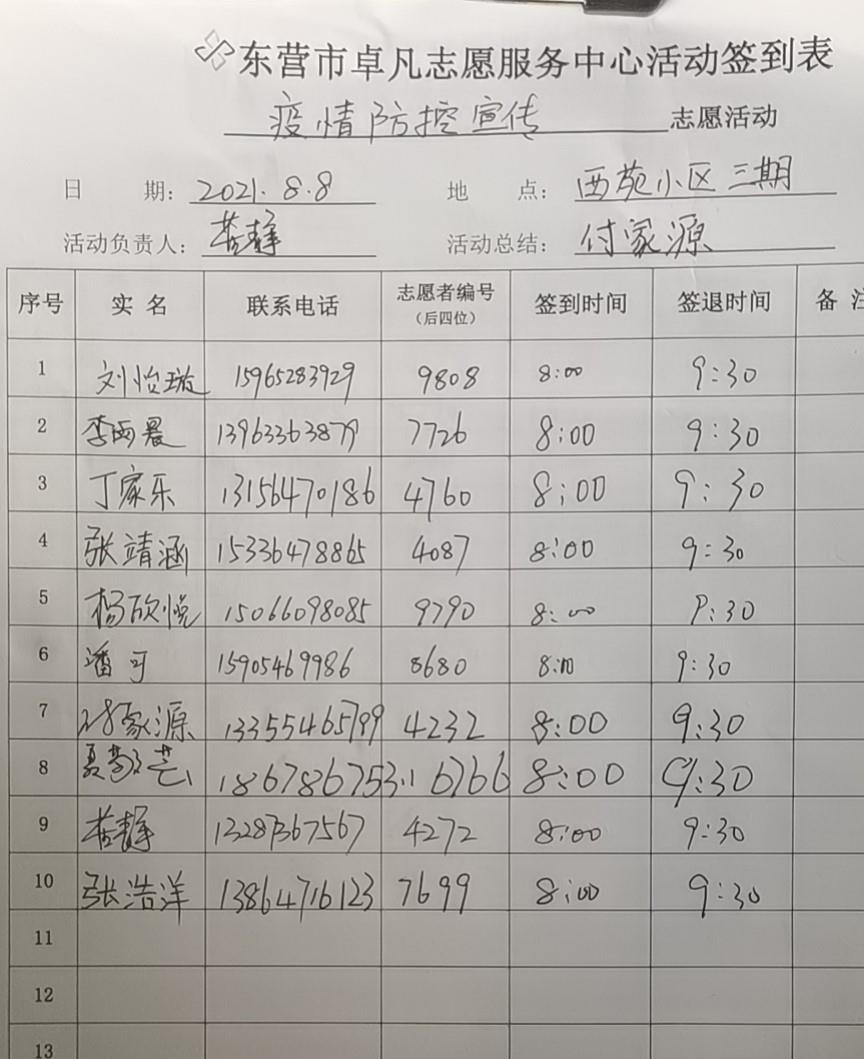 东营市卓凡志愿服务中心活动签到表
疫情防控宣传 志愿活动
日 期: 2021.8.8 地 点: 西苑小区三期
活动负责人: 静 活动总结: 付家源
序号 实名 联系电话 志愿者编号(后四位) 签到时间 签退时间 备注
1 刘怡璇 15965283929 9808 8:00 9:30
2 李雨晨 13963363879 7726 8:00 9:30
3 丁家乐 13156470186 4760 8:00 9:30
4 张靖涵 15336478865 4087 8:00 9:30
5 杨欣悦 15066098085 9790 8:00 9:30
6 潘可 15905469986 8680 8:00 9:30
7 家源 13355465799 4232 8:00 9:30
8 夏 芸 18678675311 6766 8:00 9:30
9 静 13287367567 4272 8:00 9:30
10 张浩洋 13864716123 7699 8:00 9:30
11
12
13